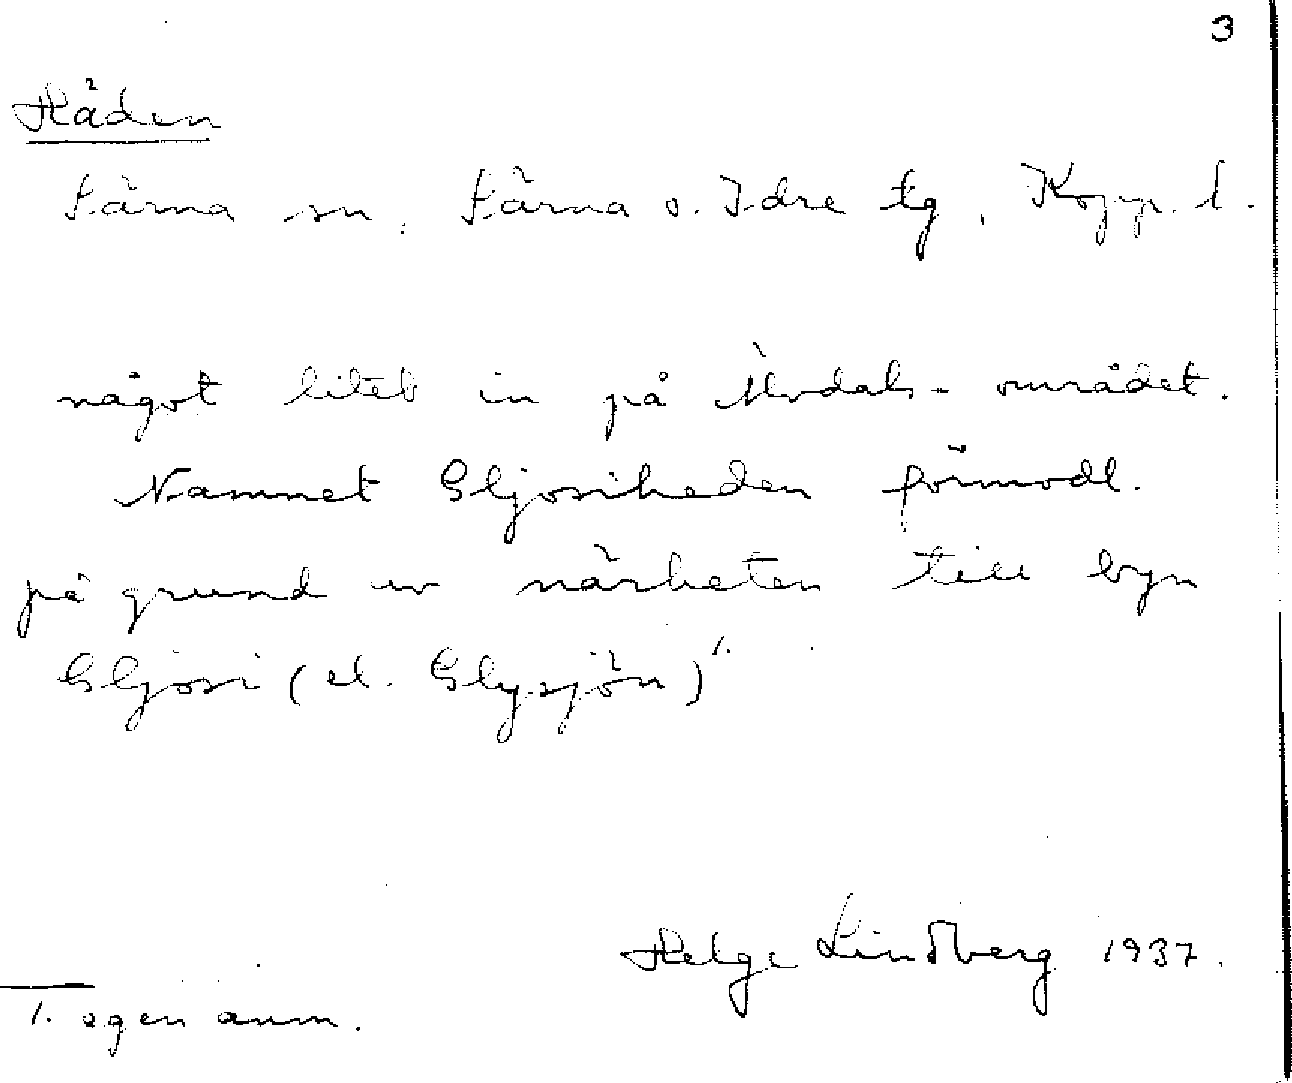 3
Häden
Särna sn. Särna o. Idre tg, Kopp. l.
något litet in på Älvdals-området.
Namnet Gljosiheden förmodl.
på grund av närheten till byn
Gljosi (el. Glysjön)¹·
Helge Lindberg 1937.
1. egen anm.